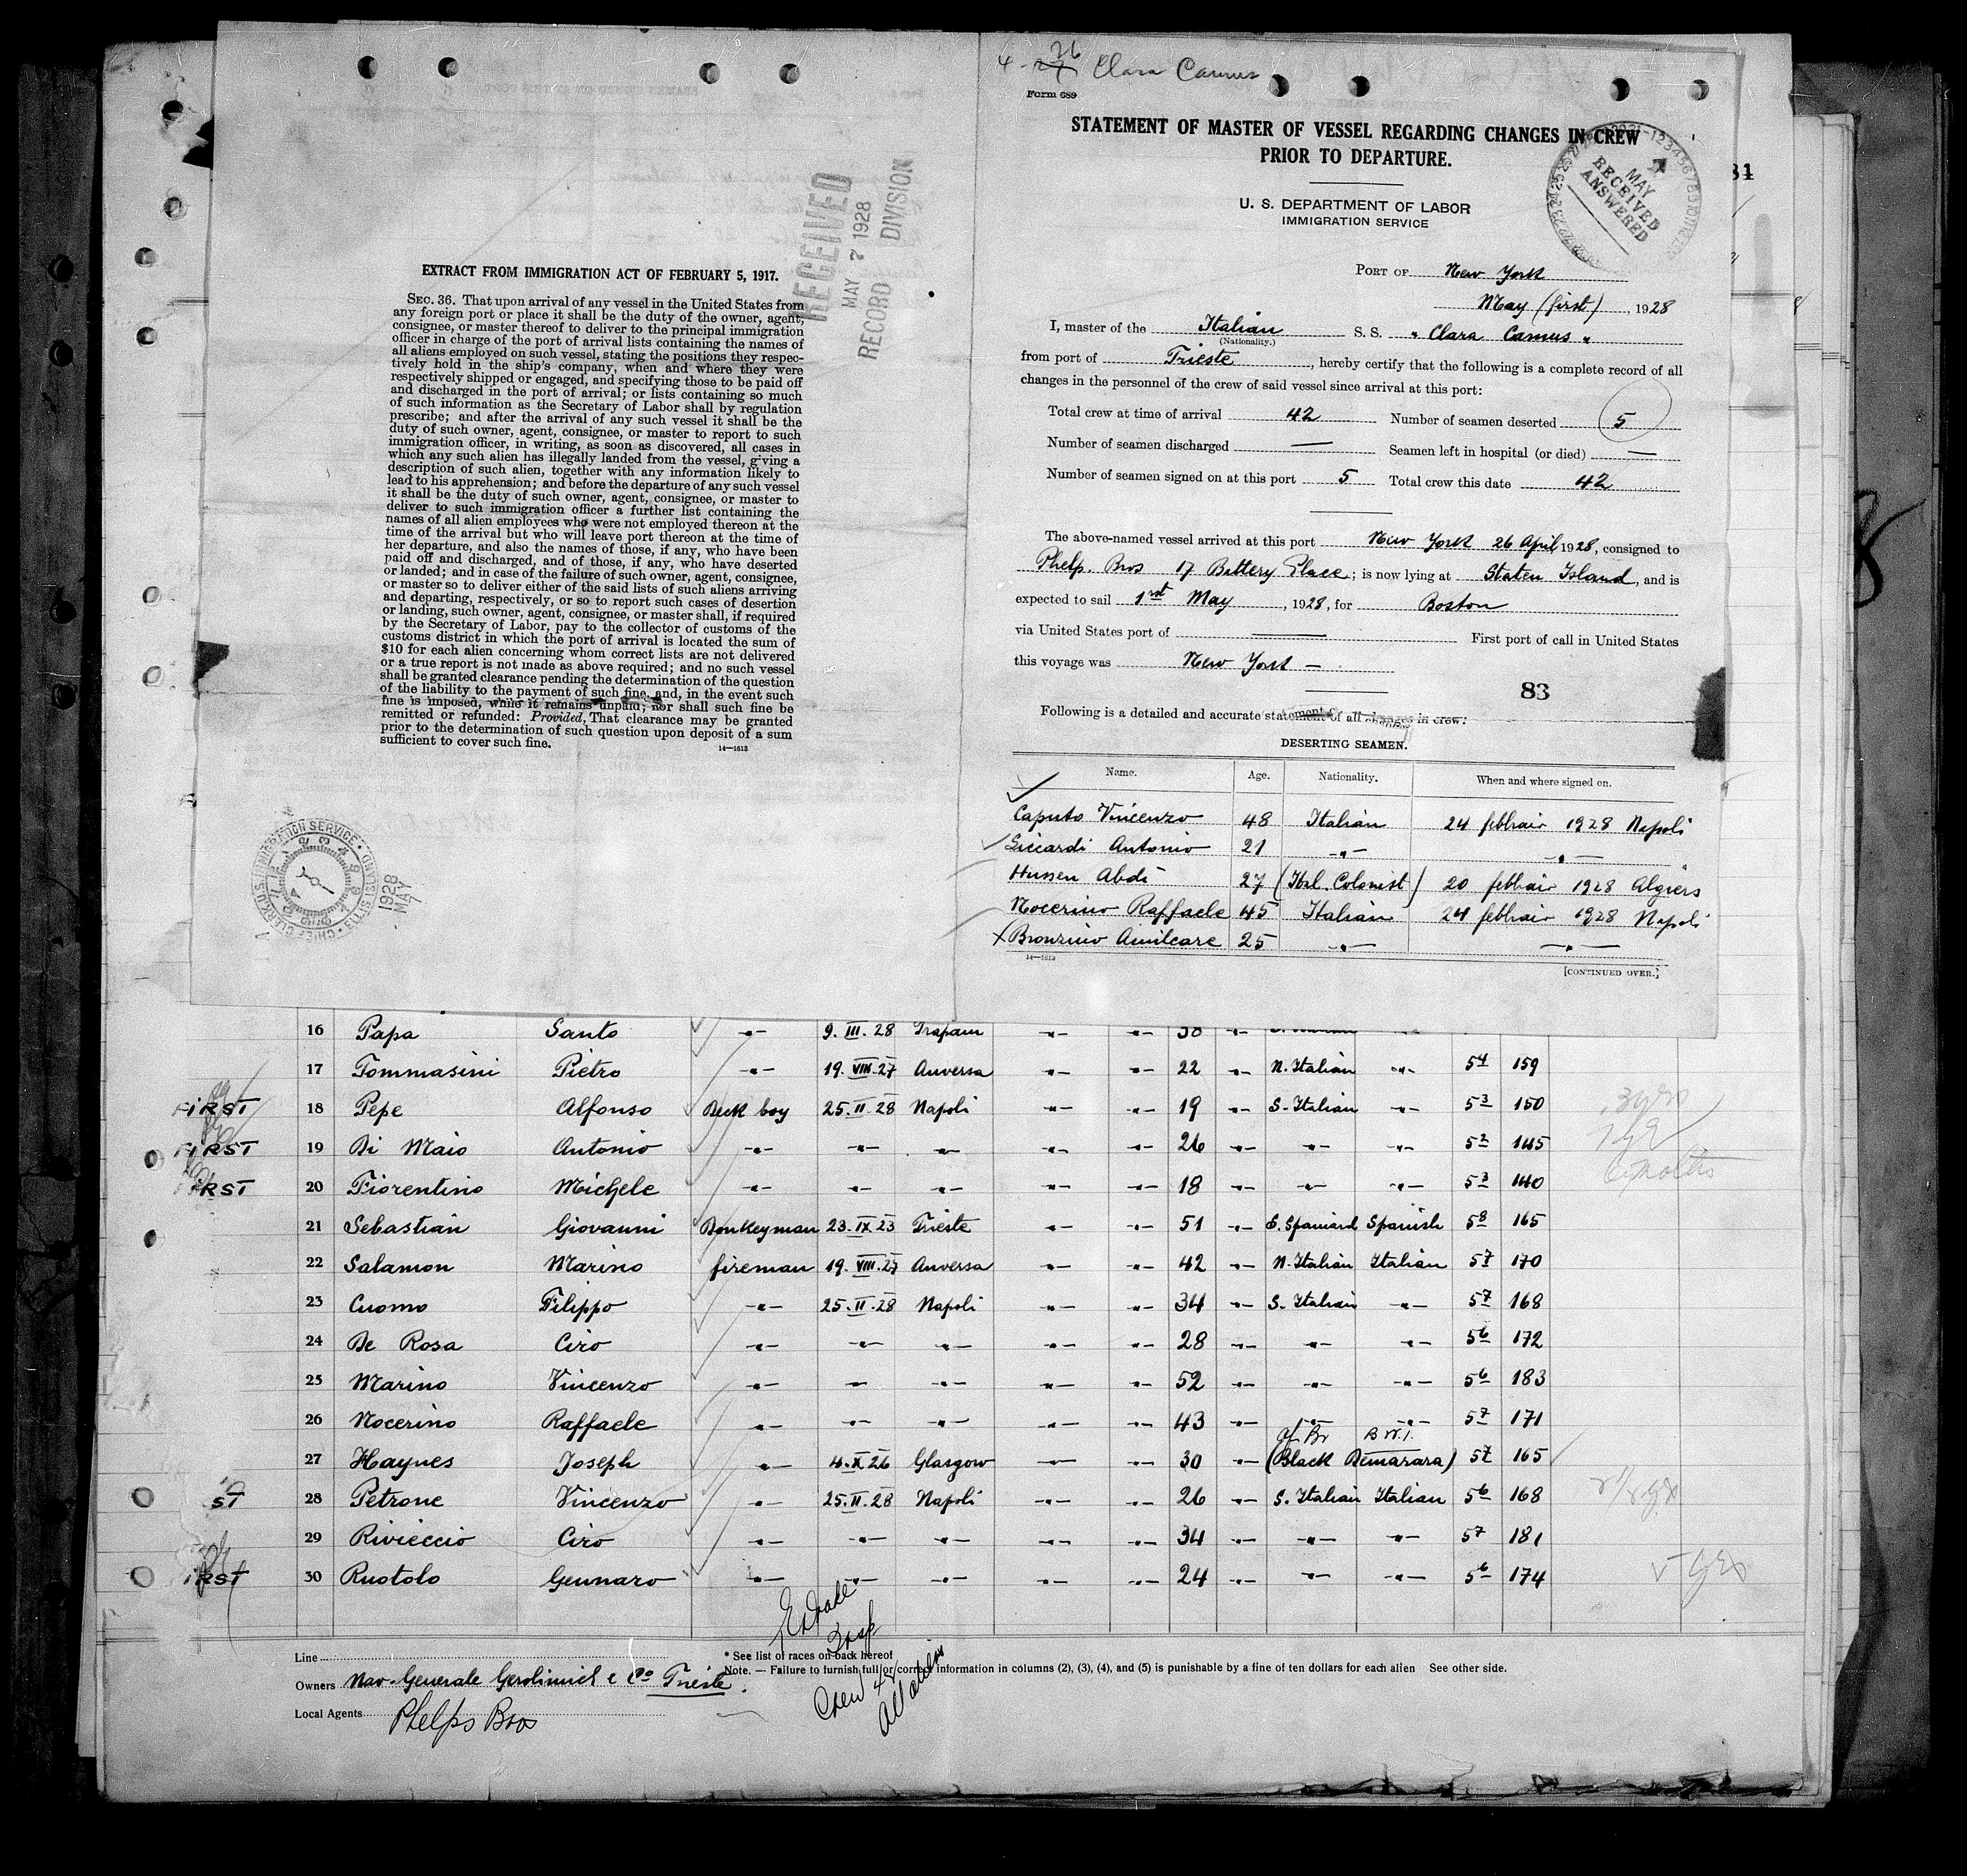 EXTRACT FROM IMMIGRATION ACT OF FEBRUARY 5, 1917.
SEC. 36. That upon arrival of any vessel in the United States from
any foreign port or place it shall be the duty of the owner, agent,
consignee, or master thereof to deliver to the principal immigration
officer in charge of the port of arrival lists containing the names of
all aliens employed on such vessel, stating the positions they respec-
tively hold in the ship's company, when and where they were
respectively shipped or engaged, and specifying those to be paid off
and discharged in the port of arrival; or lists containing so much
of such information as the Secretary of Labor shall by regulation
prescribe; and after the arrival of any such vessel it shall be the
duty of such owner, agent, consignee, or master to report to such
immigration officer, in writing, as soon as discovered, all cases in
which any such alien has illegally landed from the vessel, giving a
description of such alien, together with any information likely to
lead to his apprehension; and before the departure of any such vessel
it shall be the duty of such owner, agent, consignee, or master to
deliver to such immigration officer a further list containing the
names of all alien employees who were not employed thereon at the
time of the arrival but who will leave port thereon at the time of
her departure, and also the names of those, if any, who have been
paid off and discharged, and of those, if any, who have deserted
or landed; and in case of the failure of such owner, agent, consignee,
or master so to deliver either of the said lists of such aliens arriving
and departing, respectively, or so to report such cases of desertion
or landing, such owner, agent, consignee, or master shall, if required
by the Secretary of Labor, pay to the collector of customs of the
customs district in which the port of arrival is located the sum of
$10 for each alien concerning whom correct lists are not delivered
or a true report is not made as above required; and no such vessel
shall be granted clearance pending the determination of the question
of the liability to the payment of such fine, and, in the event such
fine is imposed, while it remains unpaid; nor shall such fine be
remitted or refunded: Provided, That clearance may be granted
prior to the determination of such question upon deposit of a sum
sufficient to cover such fine.
14—1613
RECEIVED
MAY 7 1928
RECORD DIVISION
CHIEF CLERK U.S. IMMIGRATION SERVICE
1928 MAY 7
4-26 Clara Camus
Form 689
STATEMENT OF MASTER OF VESSEL REGARDING CHANGES IN CREW
PRIOR TO DEPARTURE.
U. S. DEPARTMENT OF LABOR
IMMIGRATION SERVICE
MAY
RECEIVED
ANSWERED
PORT OF New York
May (first), 1928
I, master of the Italian S. S. "Clara Camus"
(Nationality.)
from port of Trieste, hereby certify that the following is a complete record of all
changes in the personnel of the crew of said vessel since arrival at this port:
Total crew at time of arrival 42 Number of seamen deserted 5
Number of seamen discharged — Seamen left in hospital (or died) —
Number of seamen signed on at this port 5 Total crew this date 42
The above-named vessel arrived at this port New York 26 April 1928, consigned to
Phelp. Bros 17 Battery Place; is now lying at Staten Island, and is
expected to sail 1rst May, 1928, for Boston
via United States port of — First port of call in United States
this voyage was New York —
83
Following is a detailed and accurate statement of all changes in crew:
DESERTING SEAMEN.
Name. Age. Nationality. When and where signed on.
Caputo Vincenzo 48 Italian 24 febbraio 1928 Napoli
Siccardi Antonio 21 -"- -"-
Hussen Abdi 27 (Ital. Colonist) 20 febbraio 1928 Algiers
Nocerino Raffaele 45 Italian 24 febbraio 1928 Napoli
X Bronzino Amilcare 25 -"- -"-
14—1613
[CONTINUED OVER.]
16 Papa Santo -"- 9. III. 28 Trapani -"- -"- 38 -"-
17 Tommasini Pietro -"- 19. VIII. 27 Anversa -"- -"- 22 -"- N. Italian -"- 5 4 159
FIRST 18 Pepe Alfonso Deck boy 25. II. 28 Napoli -"- -"- 19 -"- S. Italian -"- 5 3 150 3 yrs
FIRST 19 Di Maio Antonio -"- -"- -"- -"- -"- 26 -"- -"- -"- 5 2 145
FIRST 20 Fiorentino Michele -"- -"- -"- -"- -"- 18 -"- -"- -"- 5 3 140
21 Sebastian Giovanni Donkeyman 23. IX 23 Trieste -"- -"- 51 -"- S. Spaniard Spanish 5 8 165
22 Salamon Marino fireman 19. VIII. 27 Anversa -"- -"- 42 -"- N. Italian Italian 5 7 170
23 Cuomo Filippo -"- 25. II. 28 Napoli -"- -"- 34 -"- S. Italian -"- 5 7 168
24 De Rosa Ciro -"- -"- -"- -"- -"- 28 -"- -"- -"- 5 6 172
25 Marino Vincenzo -"- -"- -"- -"- -"- 52 -"- -"- -"- 5 6 183
26 Nocerino Raffaele -"- -"- -"- -"- -"- 43 -"- -"- -"- 5 7 171
Af Br B.W.I.
27 Haynes Joseph -"- 4. X 26 Glasgow -"- -"- 30 -"- (Black Demarara) 5 7 165
ST 28 Petrone Vincenzo -"- 25. II. 28 Napoli -"- -"- 26 -"- S. Italian Italian 5 6 168
29 Rivieccio Ciro -"- -"- -"- -"- -"- 34 -"- -"- -"- 5 7 181
FIRST 30 Ruotolo Gennaro -"- -"- -"- -"- -"- 24 -"- -"- -"- 5 6 174
Line
* See list of races on back hereof
Note. — Failure to furnish full or correct information in columns (2), (3), (4), and (5) is punishable by a fine of ten dollars for each alien See other side.
Owners Nav. Generale Gerolimich e Co Trieste.
Local Agents Phelps Bros
Crew 48
All aliens